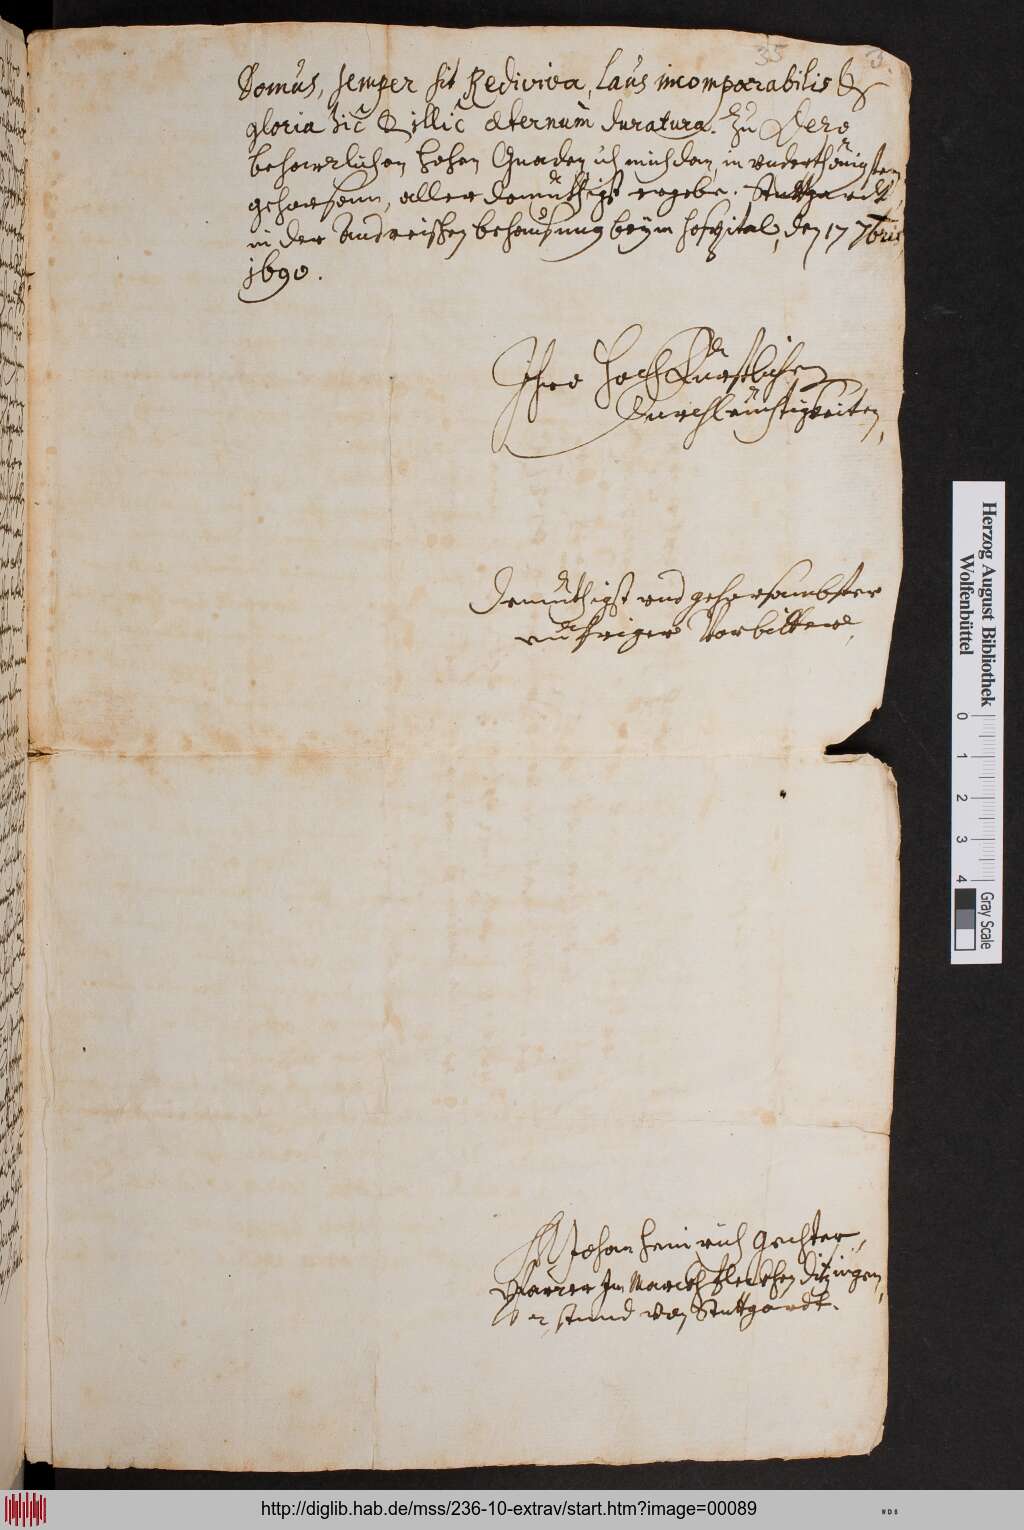 35
Domus, semper sit Rediviva, Laus incomparabilis &
gloria hic & illic æternum duratura. Zu Dero
beharrlichen hohen Gnaden ich mich dan, in underthönigstem
gehorsamm, aller demüthigst ergebe. Stuttgardt,
in der Andreischen behausung beym Hospital, den 17 7bris
1690.
Ihro Hochfürstlichen
Durchleüchtigkeiten,
Demüthigst und gehorsambster
eüfriger Vorbitter,
M Johan Heinrich Gechter,
Pfarrer Im Marckhfleckhen Ditzingen,
2 stund von Stuttgardt.
Herzog August Bibliothek
Wolfenbüttel
0 1 2 3 4
Gray Scale
http://diglib.hab.de/mss/236-10-extrav/start.htm?image=00089